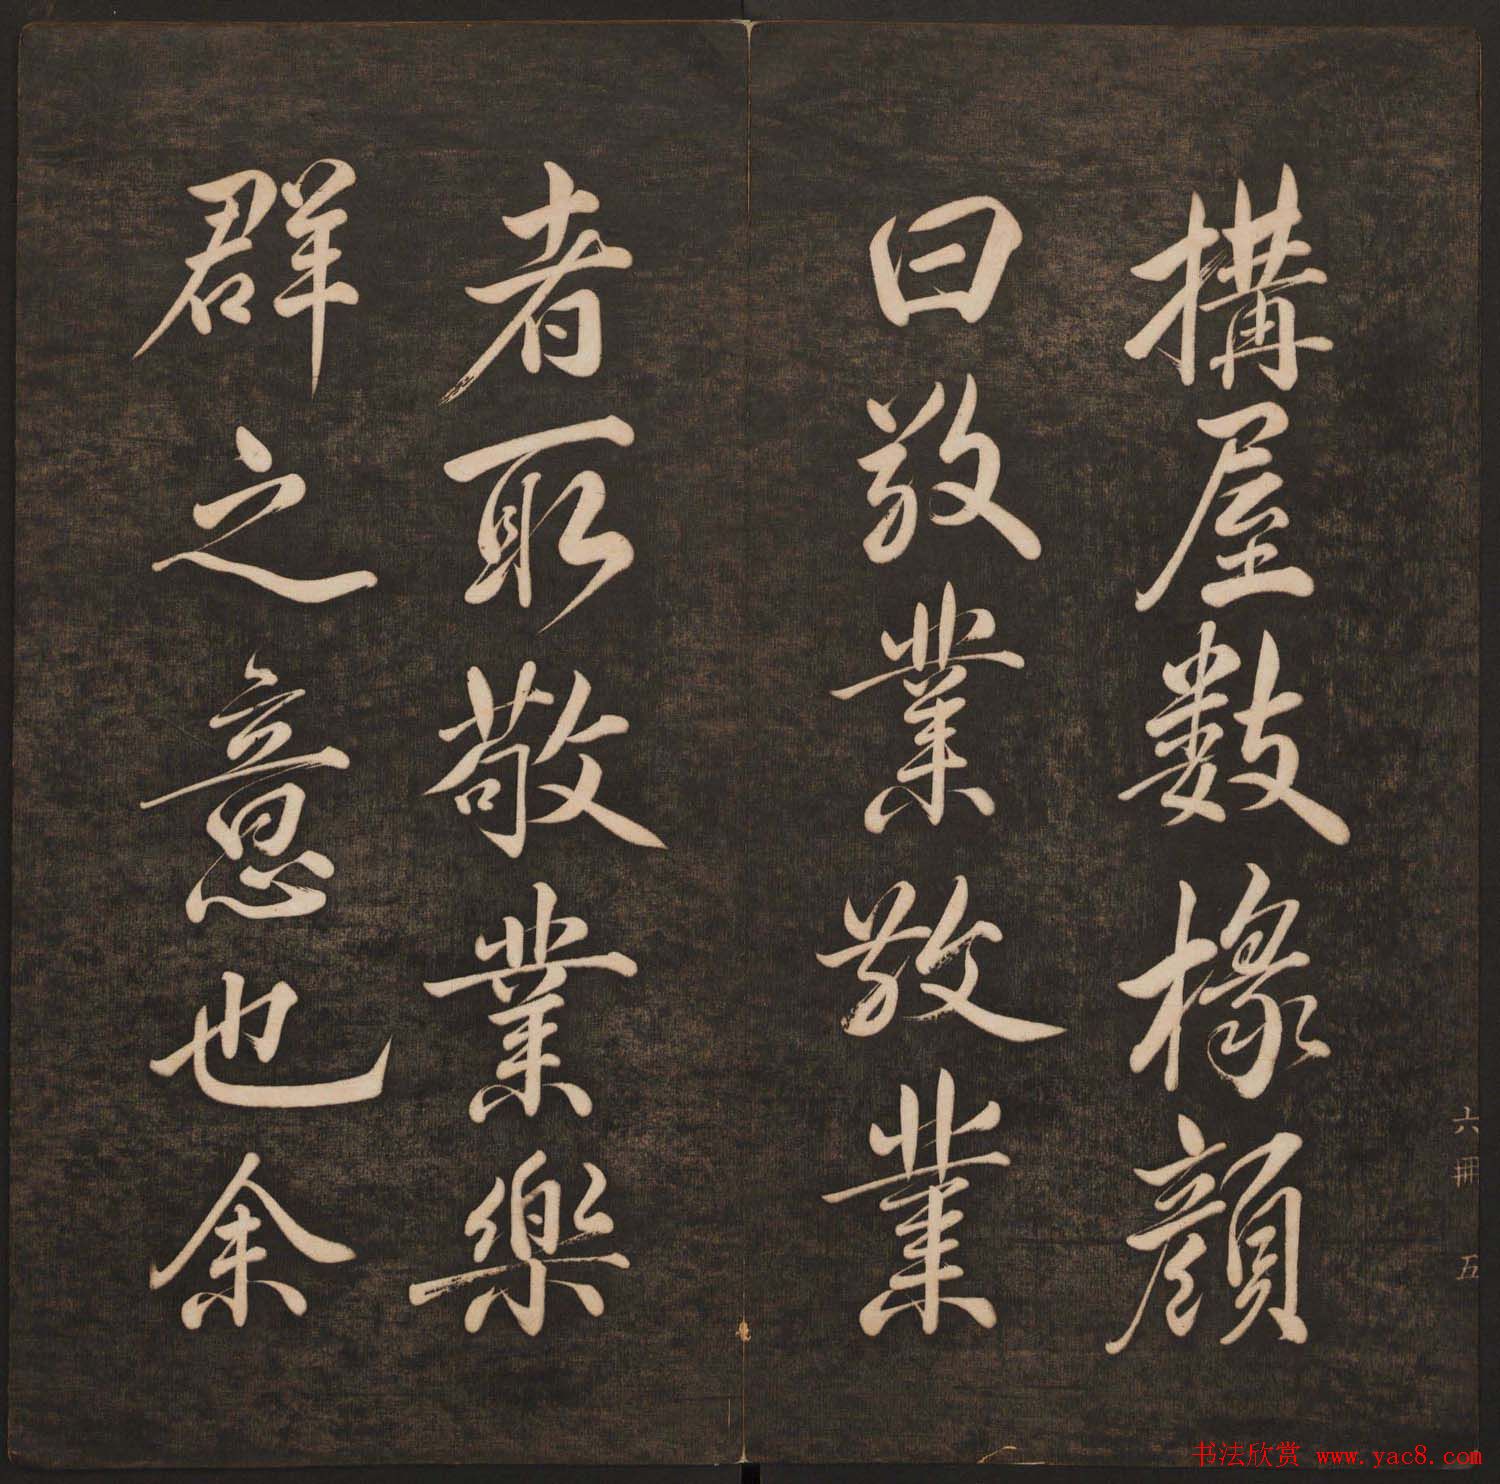 搆屋數椽顏
曰敬業敬業
者取敬業樂
群之意也余
六冊 五
书法欣赏 www.yac8.com